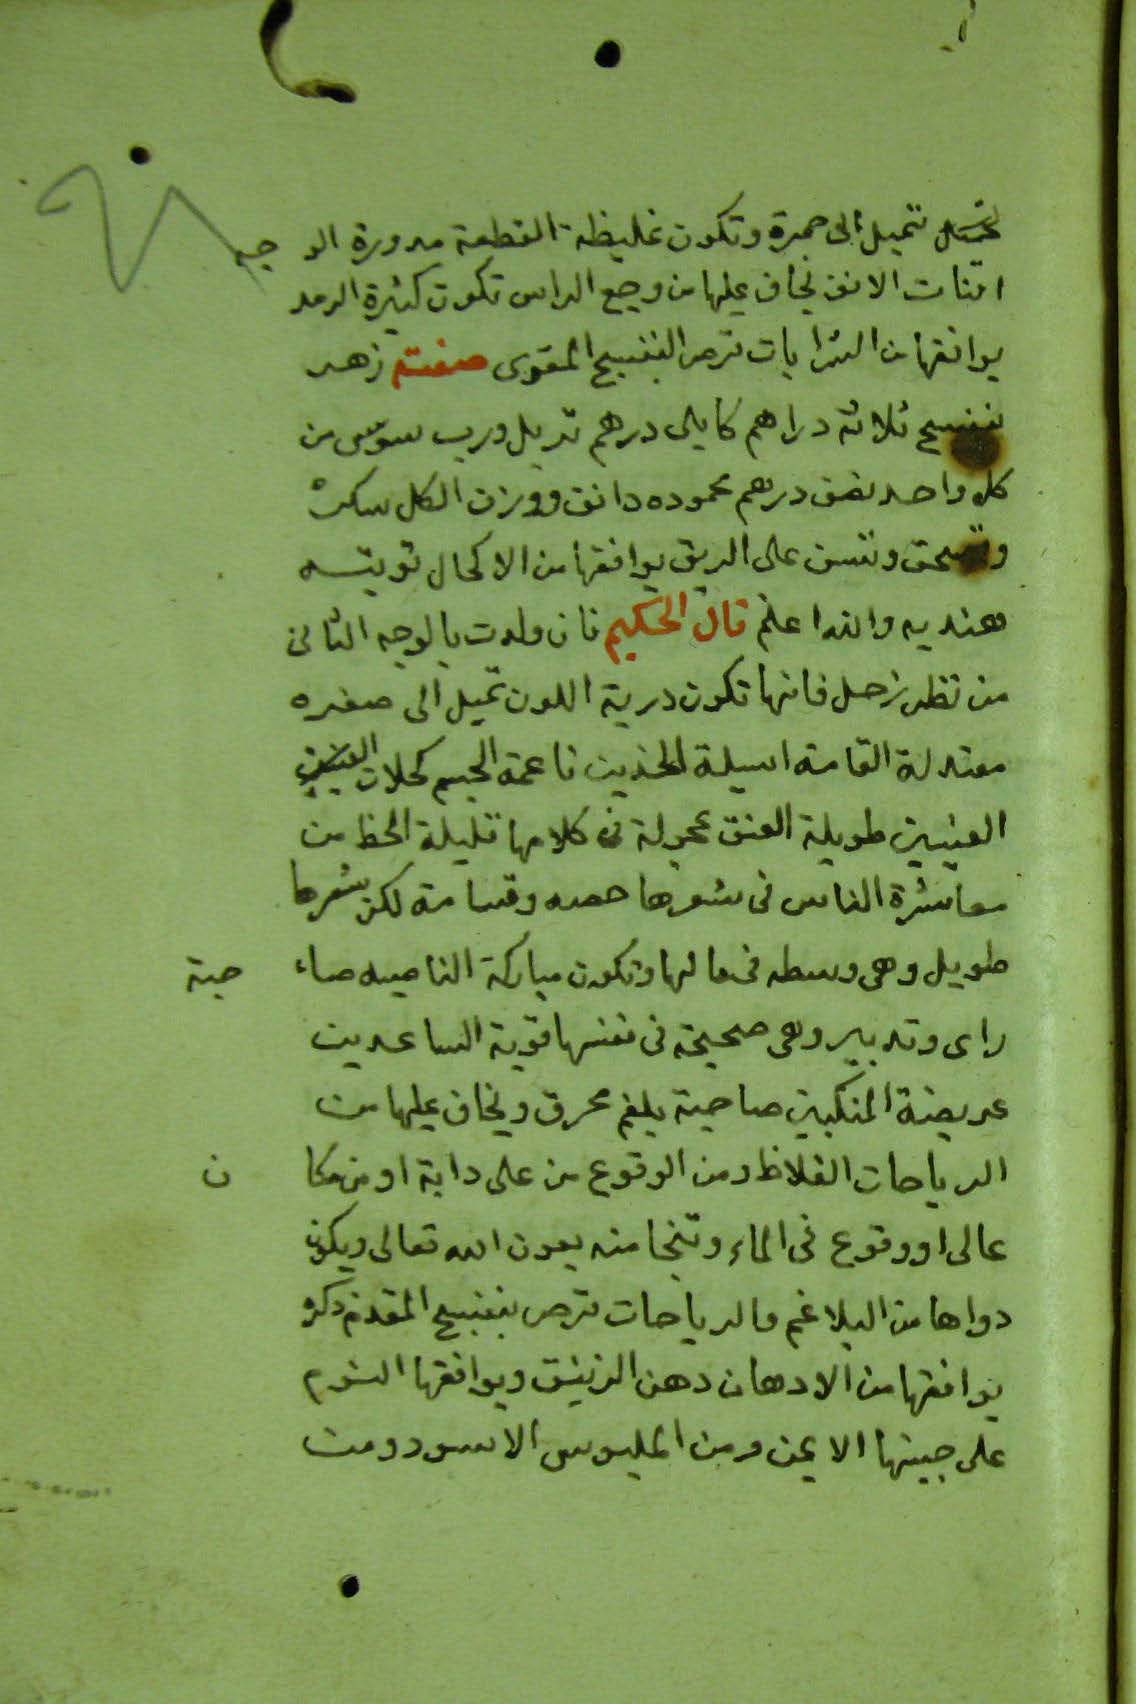 تميل الى حمرة وتكون غليظة القطعة مدورة الوجه
اقنات الانف يخاف عليها من وجع الراس تكون كثيرة الرمد
يوافقها من الشرابات قرص البنفسج المقوى صفته زهر
بنفسج ثلاثة دراهم كابلى درهم تربل ورب سوس من
كل واحد نصف درهم محموده دانق ووزن الكل سكر
وتسحق وتسف على الريق يوافقها من الاكحال توتيه
هنديه والله اعلم قال الحكيم فان ولدت بالوجه الثانى
من نظر زحل فانها تكون درية اللون تميل الى صفره
معتدلة القامة اسيلة الخدين ناعمة الجسم كحلات
العينين طويلة العنق عجولة فى كلامها قليلة الحظ من
معاشرة الناس فى شعرها جعده وقسامة لكن شعرها
طويل وهى وسطه فى مالها وتكون مباركة الناصيه صاحبة
راى وتدبير وهى صحيحة فى نفسها قوية الساعدين
عريضة المنكبين صاحبة بلغم محرق ويخاف عليها من
الرياحات الغلاظ ومن الوقوع من على دابة او من مكان
عالى او وقوع فى الماء وتنجا منه بعون الله تعالى ويكون
دواها من البلاغم والرياحات قرص بنفسج المقدم ذكره
يوافقها من الادهان دهن الزنبق ويوافقها النوم
على جبينها الايمن ومن الملبوس الاسود ومن